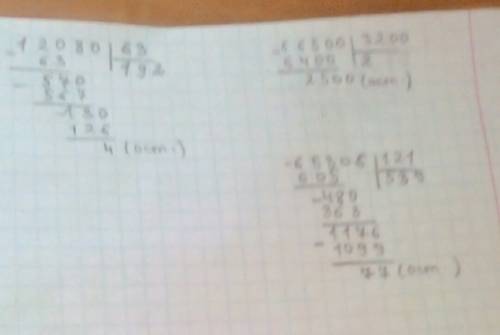 12080 | 63
63 | 192
540
567
180
126
4 (ост.)
66500 | 3200
6400 | 2
2500 (ост)
65306 | 121
605 | 539
480
363
1176
1099
77 (ост)